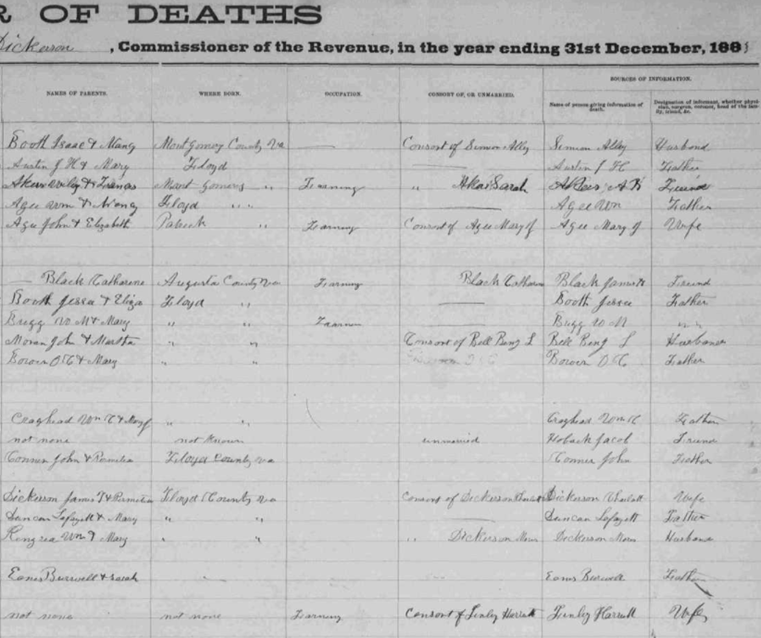 R OF DEATHS
Dickerson , Commissioner of the Revenue, in the year ending 31st December, 188
SOURCES OF INFORMATION.
NAMES OF PARENTS. WHERE BORN. OCCUPATION. CONSORT OF, OR UNMARRIED. Name of person giving information of death. Designation of informant, whether physician, surgeon, coroner, head of the family, friend, &c.
Booth Isaac & Nancy Montgomery County Va Consort of Simon Alley Simon Alley Husbond
Austin J H & Mary Floyd Austin J H Father
& Frances Mont gomery " Farming " Akers Sarah Akers Friend
Agee & Nancy Floyd " " Agee Wm Father
Agee John & Elizabeth Patrick " Farming Consort of Agee Mary J Agee Mary J Wife
Black Catharine Augusta County Va Farming Black Catharine Black James Friend
Booth Jessee & Eliza Floyd " Booth Jessee Father
& Mary " " W M " "
Moran John & Martha " " Consort of Bell Benj L Bell Benj L Husband
Bower D C & Mary " " Bower D C Father
Craghead Wm C & Mary " " Craghead Wm C Father
not none not Known unmarried Hoback Jacob Friend
Conner John & Floyd County Va Conner John Father
Dickerson James T & Floyd County Va Consort of Dickerson Dickerson Wife
Duncan Lafayett & Mary " " Duncan Lafayett Father
Wm & Mary " " " Dickerson Dickerson Husband
Eanes Burwell & Sarah " Eanes Burwell Father
not none not none Farming Consort of Finley Harrett Finley Harrett Wife